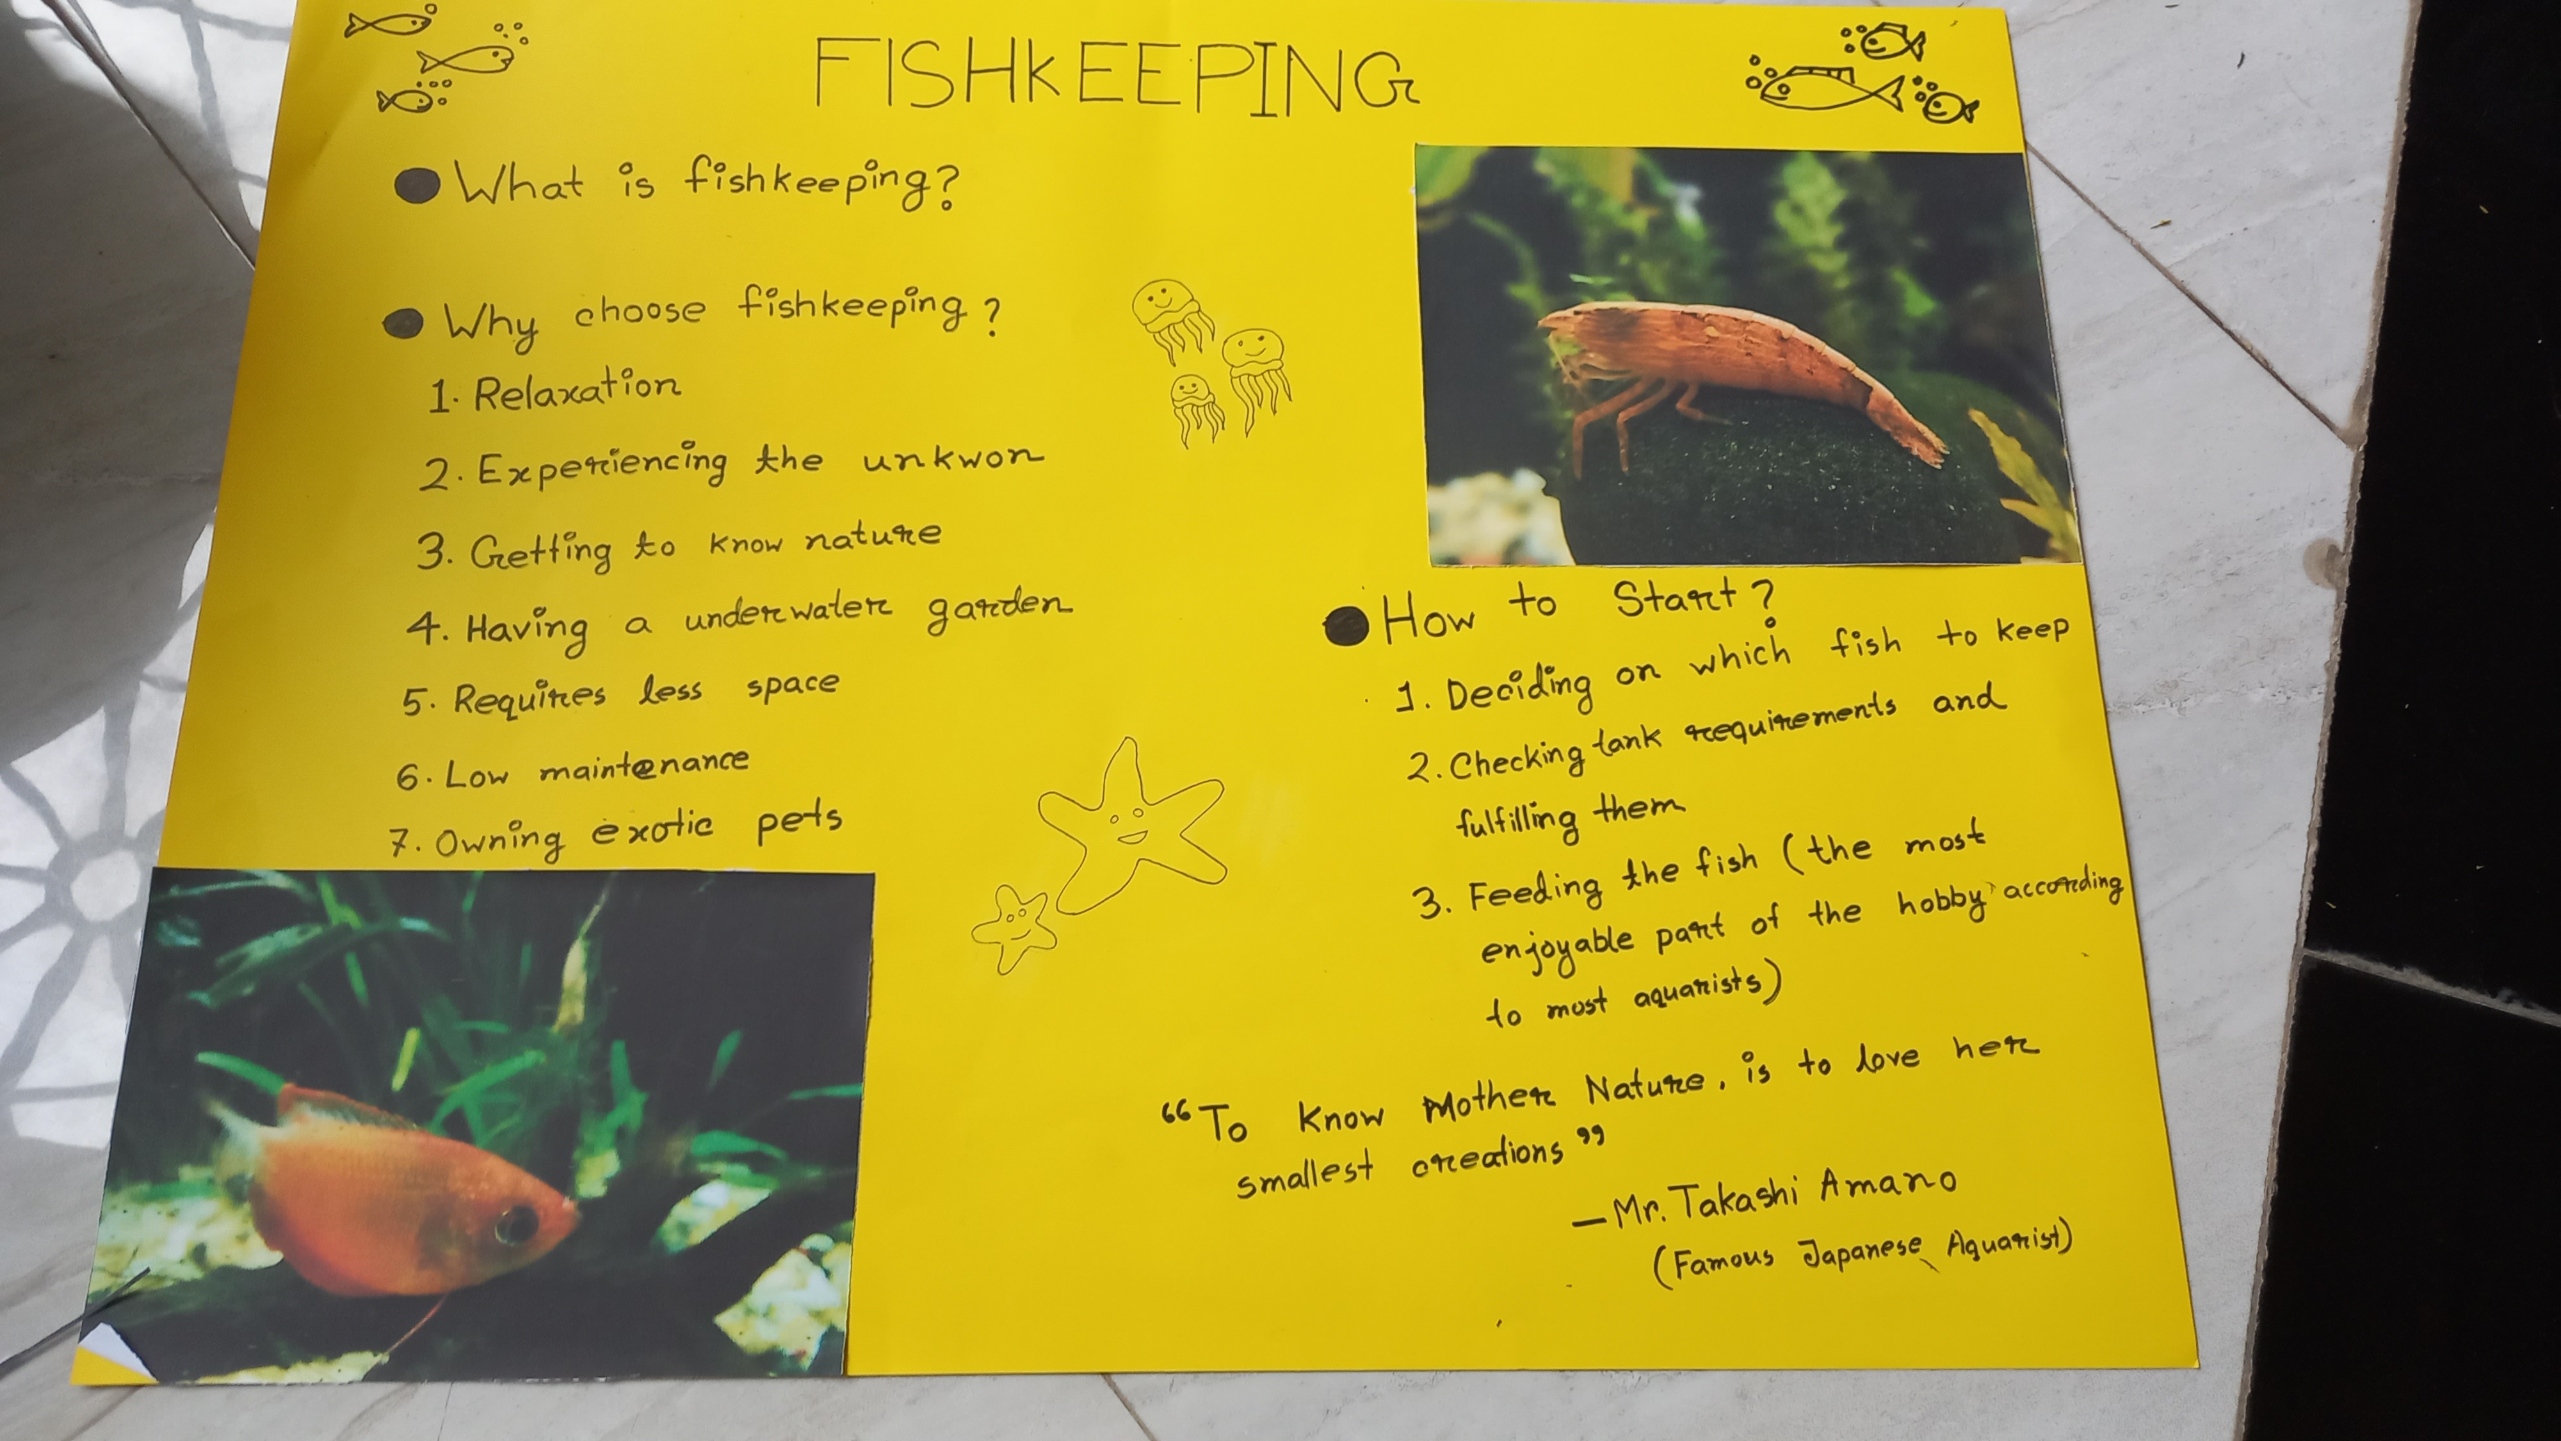 FISHKEEPING
What is fishkeeping?
Why choose fishkeeping?
1. Relaxation
2. Experiencing the unkwon
3. Getting to know nature
4. Having a underwater garden
5. Requires less space
6. Low maintenance
7. Owning exotic pets
How to Start?
1. Deciding on which fish to keep
2. Checking tank requirements and
fulfilling them
3. Feeding the fish (the most
enjoyable part of the hobby according
to most aquarists)
“To know Mother Nature, is to love her
smallest creations”
—Mr. Takashi Amano
(Famous Japanese Aquarist)